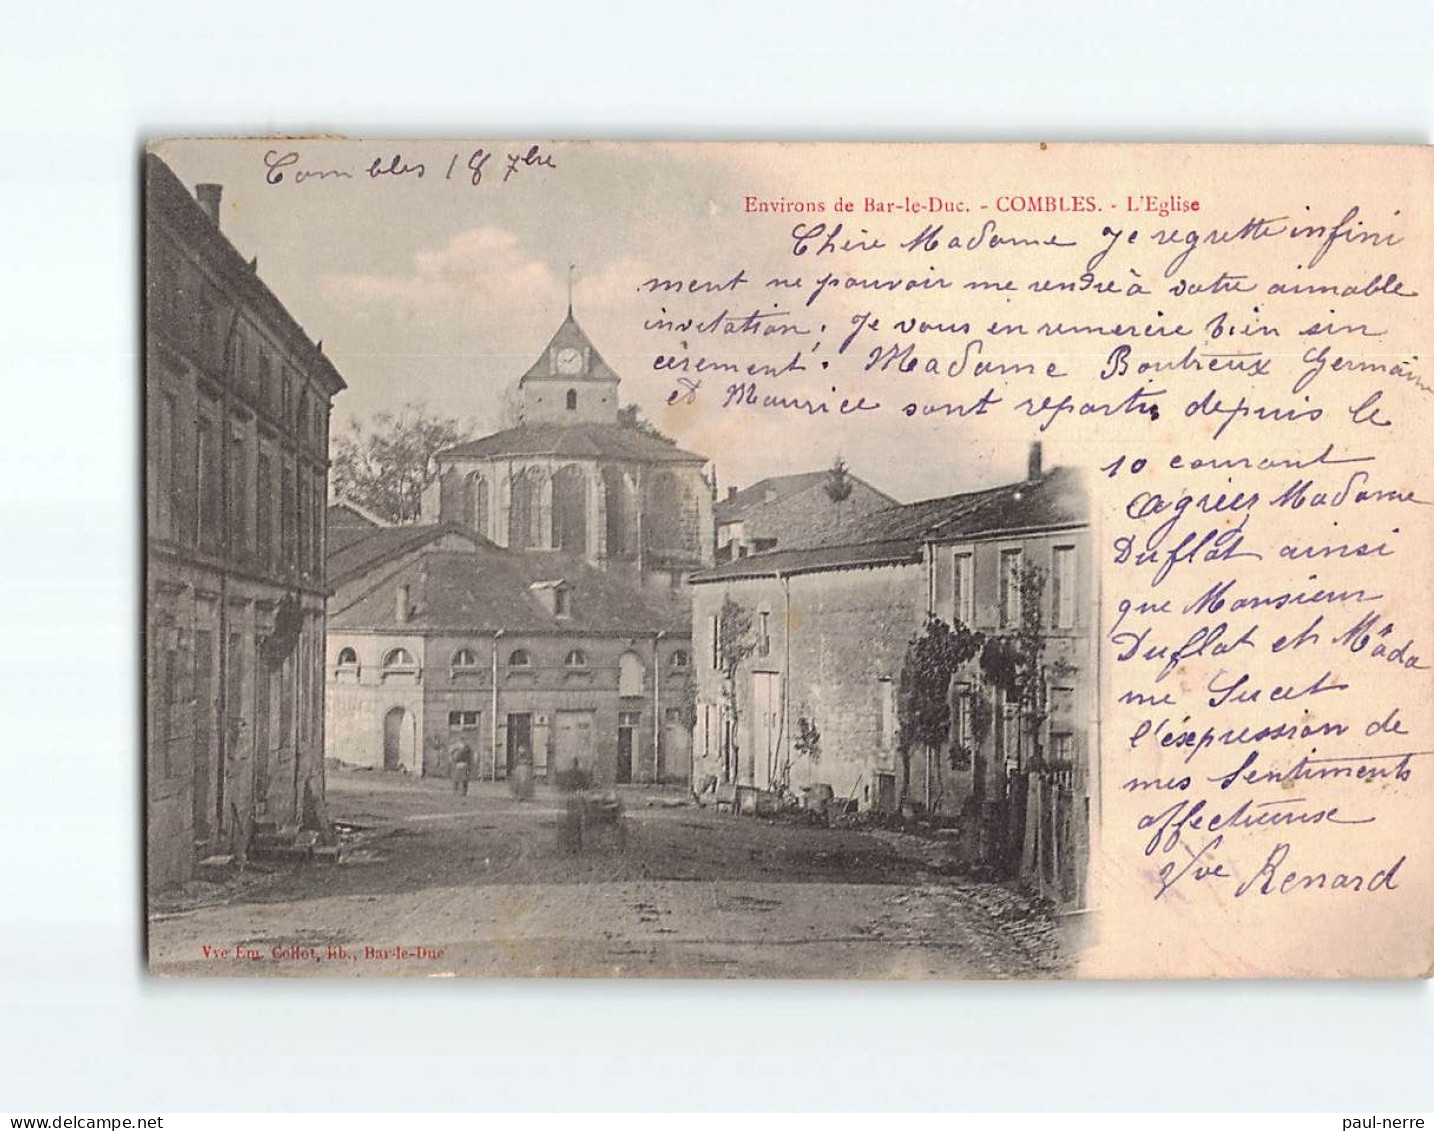 Combles 18 7bre
Environs de Bar-le-Duc. - COMBLES. - L'Eglise
Chère Madame Je regrette infini
ment ne pouvoir me rendre à votre aimable
invitation, Je vous en remercie bien sin
cèrement. Madame Boutreux Germaine
et Maurice sont repartis depuis le
10 courant
Agréez Madame
Duflot ainsi
que Monsieur
Duflot et Mada
me Sucet
l'éxpression de
mes Sentiments
affectueuse
Vve Renard
Vve Em. Collot, lib., Bar-le-Duc
delcampe.net
paul-nerre